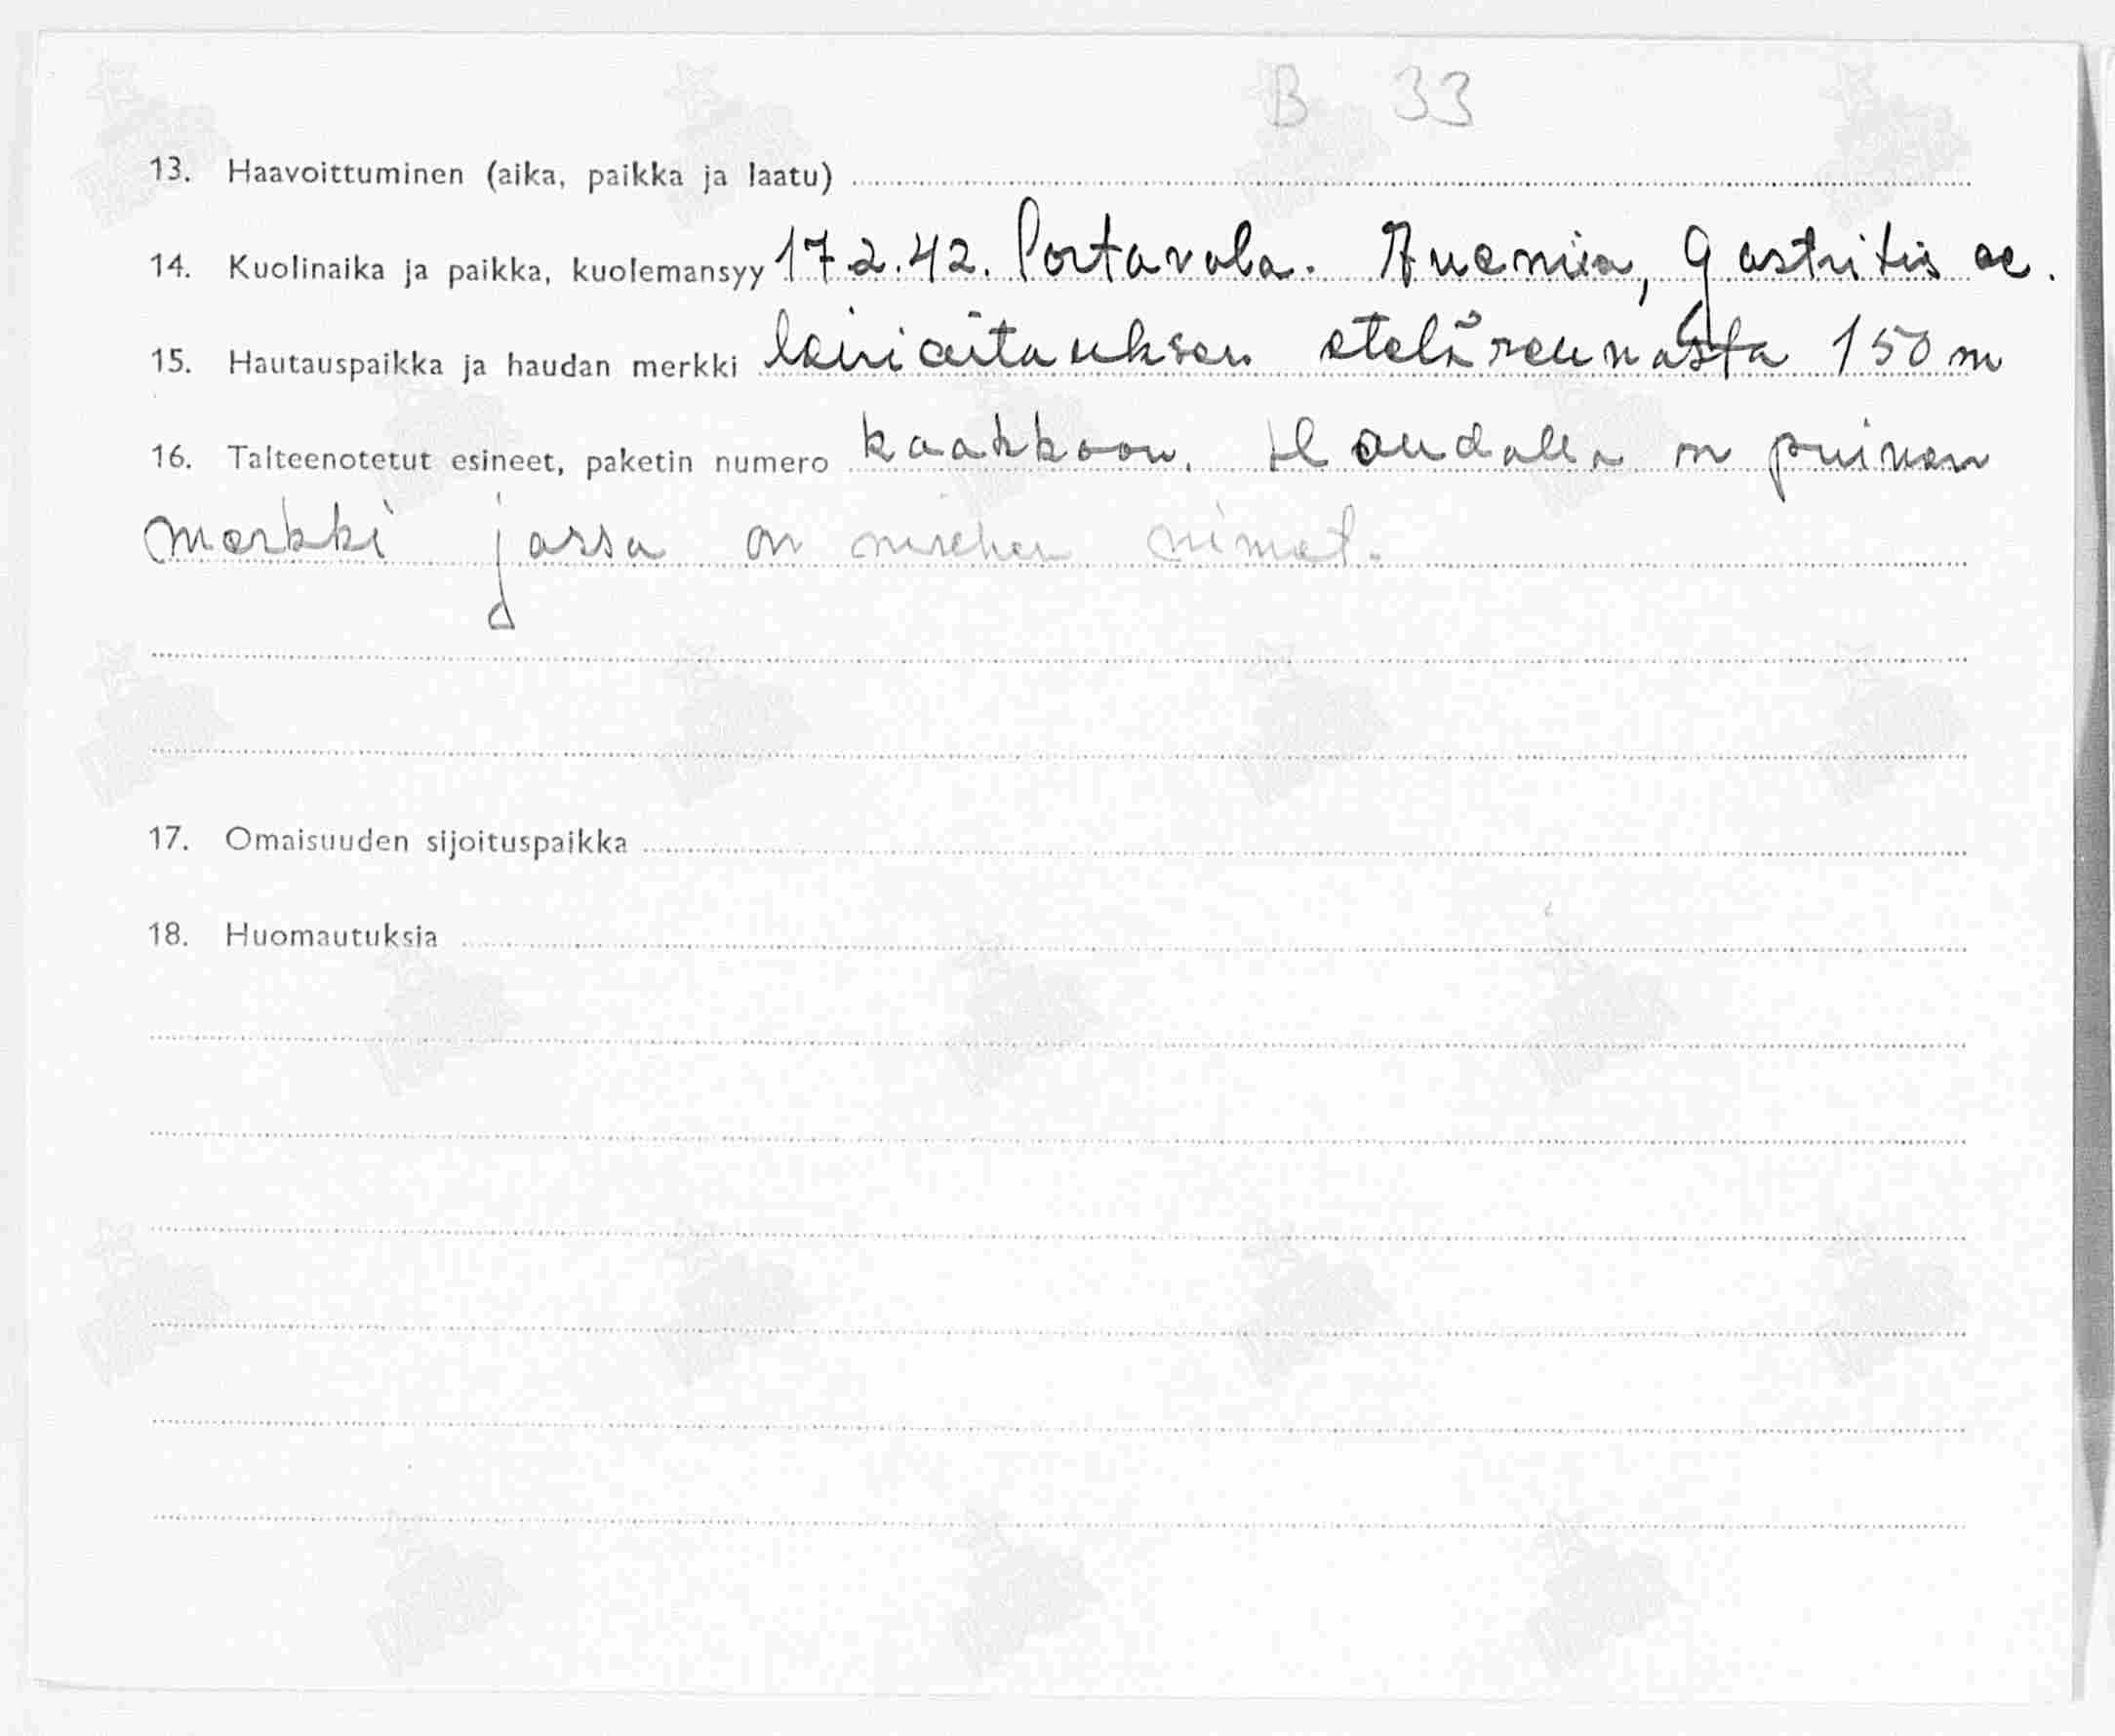 B 33
13. Haavoittuminen (aika, paikka ja laatu)
14. Kuolinaika ja paikka, kuolemansyy 17.2.42. Portavala. Anemia, Gastritis ac.
15. Hautauspaikka ja haudan merkki leiriaitauksen eteläreunasta 150 m
16. Talteenotetut esineet, paketin numero kaakkoon. Haudalla on puinen
merkki jossa on miehen nimet.
17. Omaisuuden sijoituspaikka
18. Huomautuksia